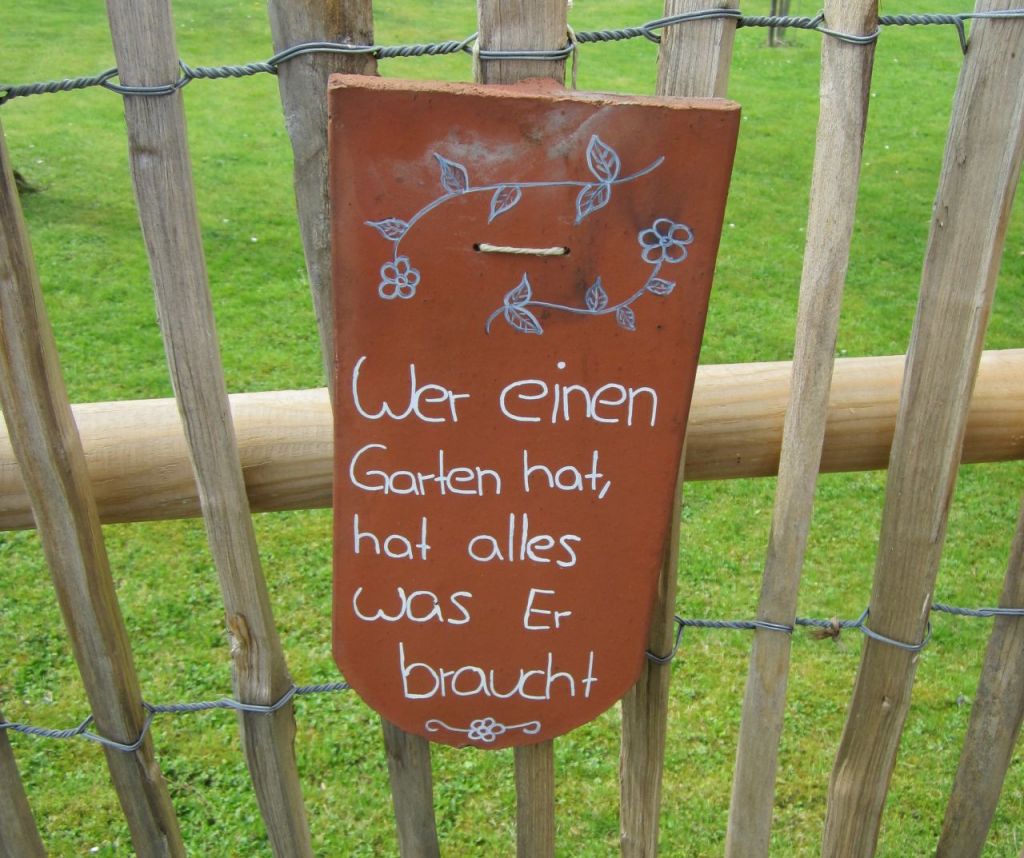 Wer einen
Garten hat,
hat alles
was Er
braucht